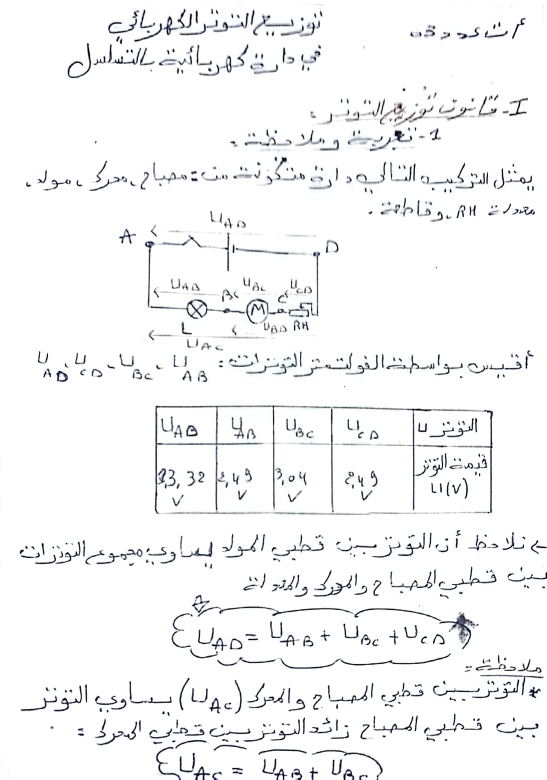 توزيع التوتر الكهربائي
في دارة كهربائية بالتسلسل
I- قانون توزيع التوتر:
1- تجربة وملاحظة:
يمثل التركيب التالي دارة متكونة من: مصباح، محرك، مولد،
معدلة RH، وقاطعة.
U_AD
A D
U_AB U_BC U_CD
B C
M RH
L U_BD
U_AC
أقيس بواسطة الفولتمتر التوترات: U_AB، U_BC، U_CD، U_AD
التوتر U U_CD U_BC U_AB U_AD
قيمة التوتر U(V) 2,49 V 3,04 V 2,49 V 13,32 V
نلاحظ أن التوتر بين قطبي المولد يساوي مجموع التوترات
بين قطبي المصباح والمحرك والمعدلة
U_AD = U_AB + U_BC + U_CD
ملاحظة:
* التوتر بين قطبي المصباح والمحرك (U_AC) يساوي التوتر
بين قطبي المصباح زائد التوتر بين قطبي المحرك:
U_AC = U_AB + U_BC